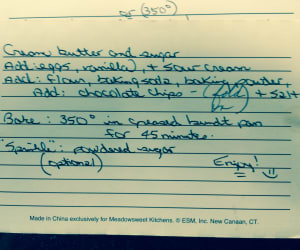 (350°)
Cream butter and sugar
Add: eggs, vanilla, + sour cream
Add: flour, baking soda, baking powder,
Add: chocolate chips - + salt
Bake: 350° in greased bundt pan
for 45 minutes.
"Sprinkle": powdered sugar
(optional) Enjoy!
Made in China exclusively for Meadowsweet Kitchens. © ESM, Inc. New Canaan, CT.